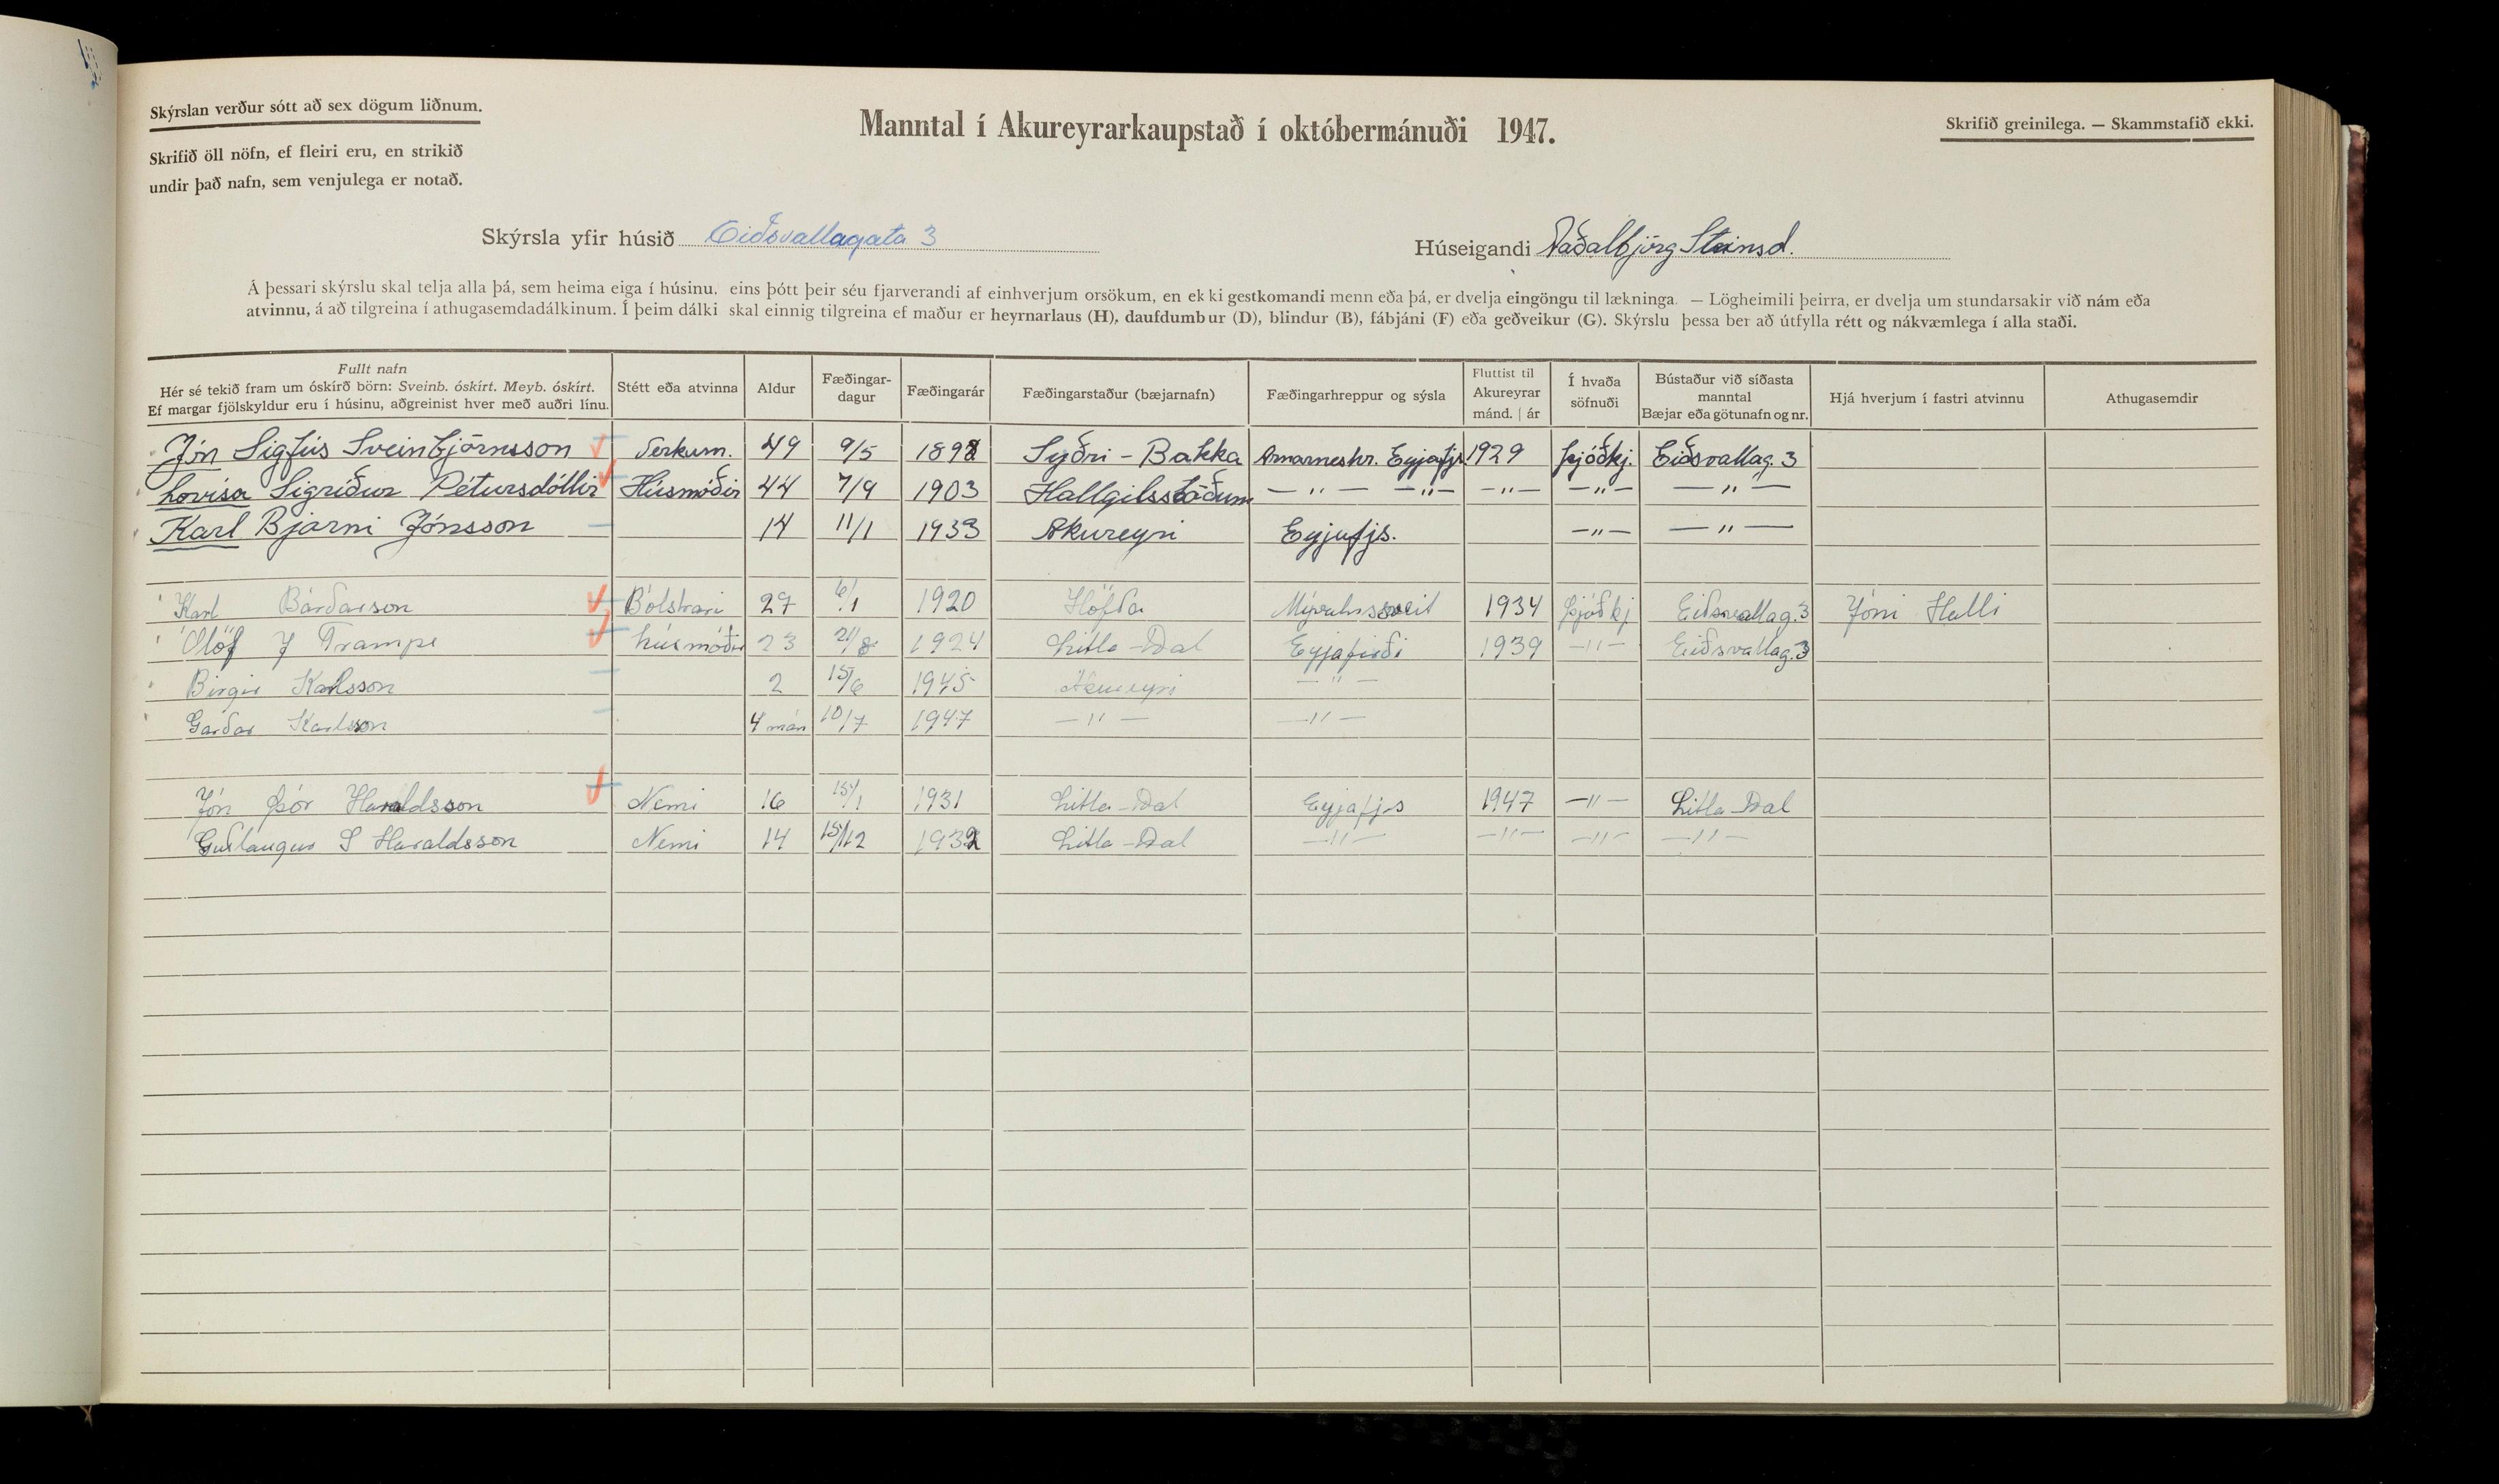 Skýrslan verður sótt að sex dögum liðnum.
Skrifið öll nöfn, ef fleiri eru, en strikið
undir það nafn, sem venjulega er notað.
Manntal í Akureyrarkaupstað í októbermánuði 1947.
Skrifið greinilega. — Skammstafið ekki.
Skýrsla yfir húsið Eiðsvallagata 3
Húseigandi Aðalbjörg Steinsd.
Á þessari skýrslu skal telja alla þá, sem heima eiga í húsinu, eins þótt þeir séu fjarverandi af einhverjum orsökum, en ekki gestkomandi menn eða þá, er dvelja eingöngu til lækninga. — Lögheimili þeirra, er dvelja um stundarsakir við nám eða
atvinnu, á að tilgreina í athugasemdadálkinum. Í þeim dálki skal einnig tilgreina ef maður er heyrnarlaus (H), daufdumbur (D), blindur (B), fábjáni (F) eða geðveikur (G). Skýrslu þessa ber að útfylla rétt og nákvæmlega í alla staði.
Fullt nafn
Hér sé tekið fram um óskírð börn: Sveinb. óskírt. Meyb. óskírt.
Ef margar fjölskyldur eru í húsinu, aðgreinist hver með auðri línu.
Stétt eða atvinna
Aldur
Fæðingar-
dagur
Fæðingarár
Fæðingarstaður (bæjarnafn)
Fæðingarhreppur og sýsla
Fluttist til
Akureyrar
mánd. | ár
Í hvaða
söfnuði
Bústaður við síðasta
manntal
Bæjar eða götunafn og nr.
Hjá hverjum í fastri atvinnu
Athugasemdir
Jón Sigfús Sveinbjörnsson Verkam. 49 9/5 1898 Syðri-Bakka Arnarneshr. Eyjafjs. 1929 Þjóðkj. Eiðsvallag. 3
Lovísa Sigríður Pétursdóttir Húsmóðir 44 7/9 1903 Hallgilsstöðum — " — — " — — " — — " — — " —
Karl Bjarni Jónsson 14 11/1 1933 Akureyri Eyjafjs. — " — — " —
Karl Bárðarson Bólstrari 27 6/1 1920 Höfða Mývatnssveit 1934 Þjóðkj Eiðsvallag. 3 Jóni Halli
Ólöf J Trampe húsmóðir 23 21/8 1924 Litla-Dal Eyjafirði 1939 — " — Eiðsvallag. 3
Birgir Karlsson 2 15/6 1945 Akureyri — " —
Garðar Karlsson 4 mán 10/7 1947 — " — — " —
Jón Þór Haraldsson Nemi 16 15/1 1931 Litla-Dal Eyjafjs 1947 — " — Litla-Dal
Guðlaugur S Haraldsson Nemi 14 15/12 1932 Litla-Dal — " — — " — — " — — " —